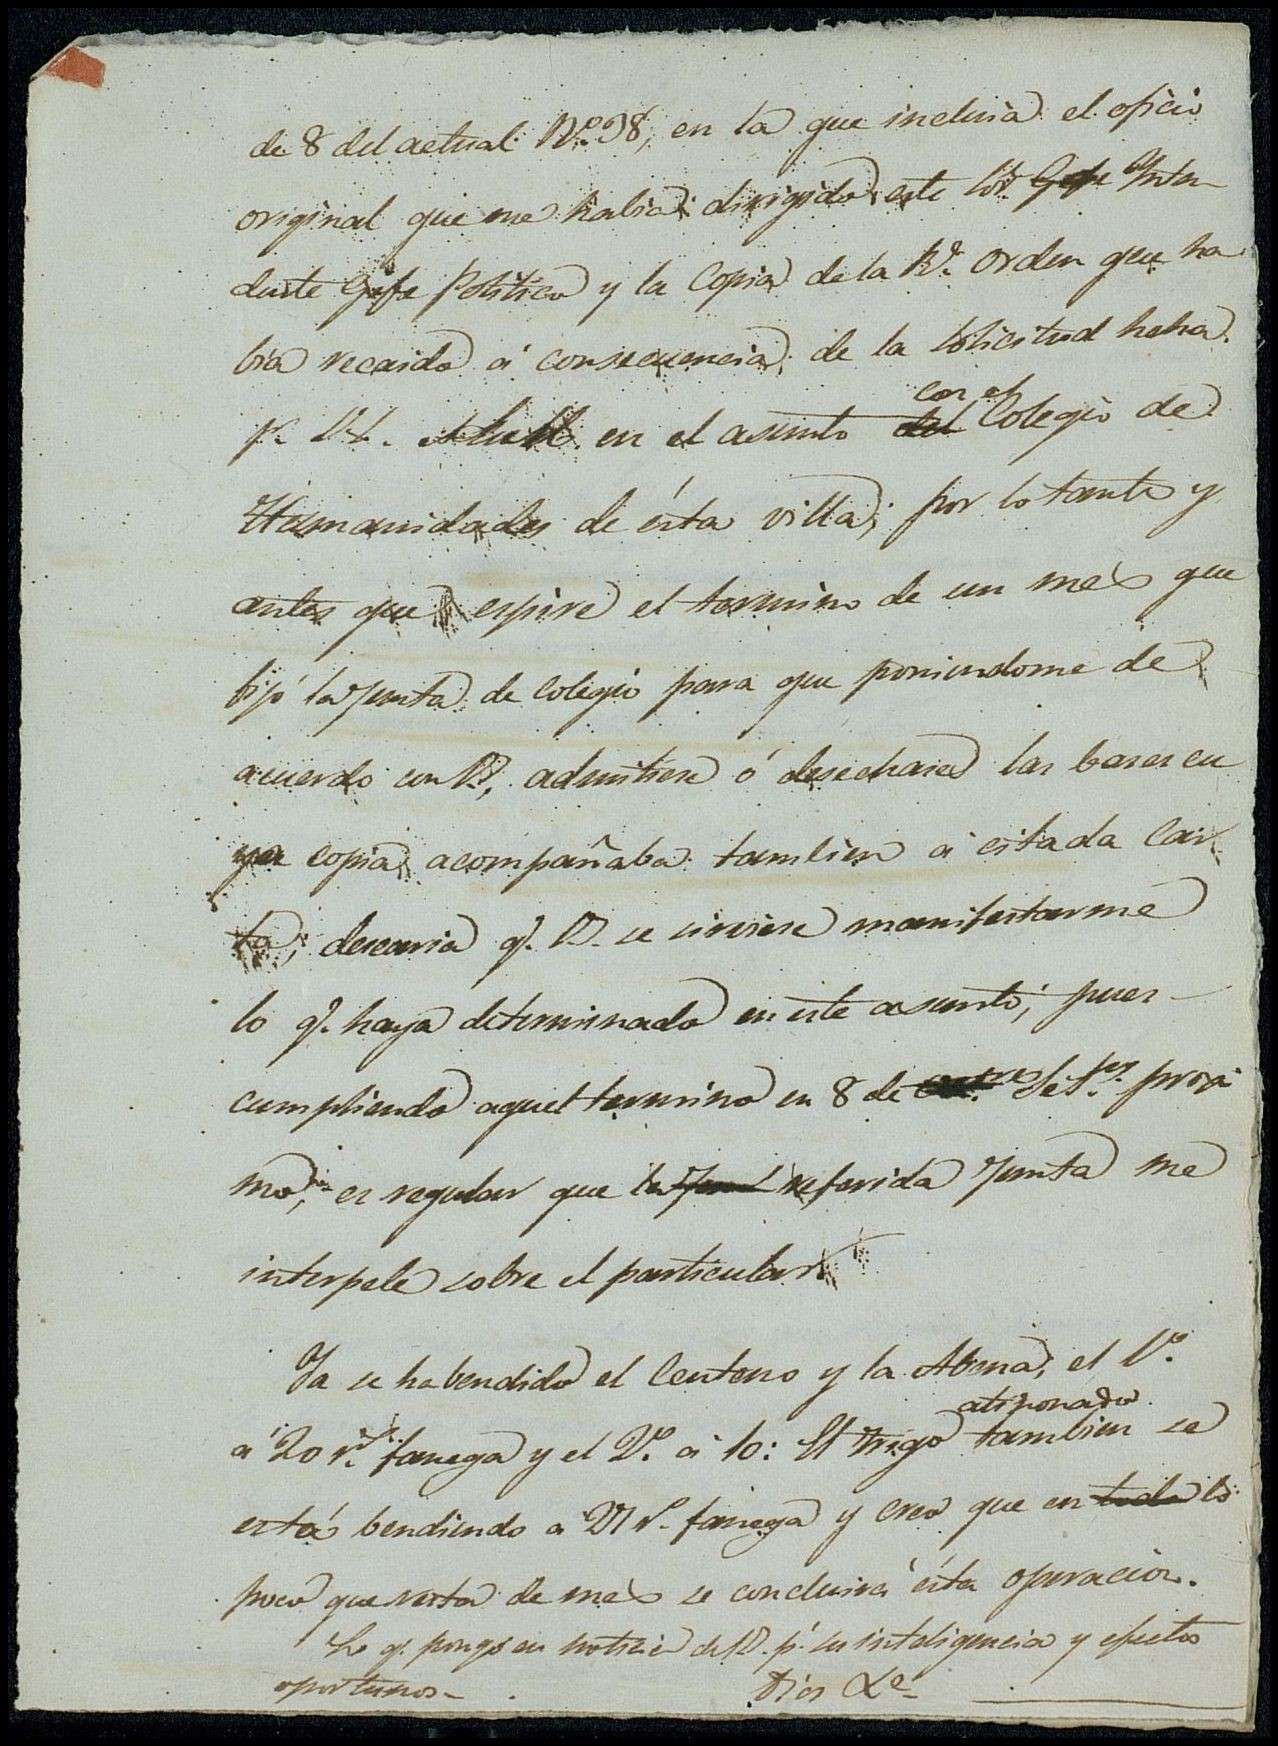 de 8 del actual Nº 98, en la que incluia el oficio
original que me habia dirigido este Sor Gefe Inten
dente Gefe Politico y la Copia de la Rl. orden que ha
bia recaido á consecuencia de la solicitud hecha
pr. en el asunto del con el Colegio de
Humanidades de ésta villa; por lo tanto y
antes que espire el termino de un mes que
fijó la Junta de Colegio para que poniendome de
acuerdo con V. admitiese ó desechase las bases cu
ya copia acompañaba tambien á citada Car
ta; desearia q. V. se sirviese manifestarme
lo q. haya determinado en este asunto, pues
cumpliendo aquel termino en 8 de Set.e proxi
mo, es regular que la Junt referida Junta me
interpele sobre el particular
Ya se ha bendido el Centeno y la Abena; el 1º.
á 20 rs. fanega y el 2º. á 10: El trigo atiponado tambien se
está bendiendo a 27 r. fanega y creo que en todo lo
poco que resta de mes se concluirá ésta operacion.
Lo q. pongo en noticia de V. pª. su inteligencia y efectos
oportunos
Dios &ª